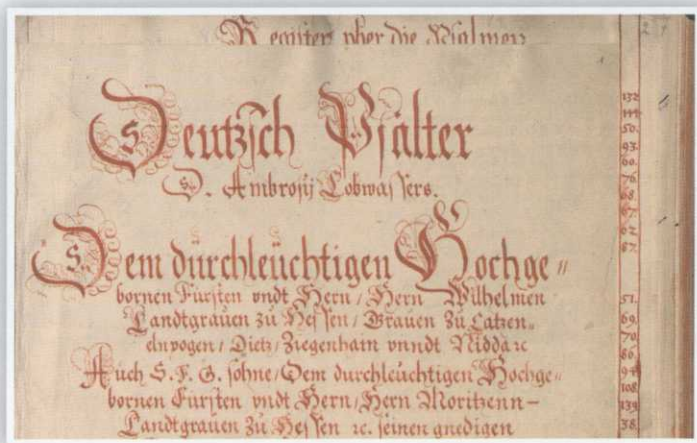 Register vber die Psalmen
Deutzsch Psalter
D. Ambrosij Lobwassers.
Dem durchleuchtigen Hochge=
bornen Fürsten vndt Hern / Hern Wilhelmen
Landtgrauen zu Hessen / Grauen zu Catzen=
elnpogen / Dietz / Ziegenhain vnndt Nidda ꝛc
Auch S. F. G. sohne / Dem durchleuchtigen Hochge=
bornen Fürsten vndt Hern / Hern Moritzenn –
Landtgrauen zu Hessen ꝛc. seinen gnedigen
132
111
50.
93.
60.
76.
68.
67.
62.
87.
51.
69.
70.
86.
94.
108.
139.
38.